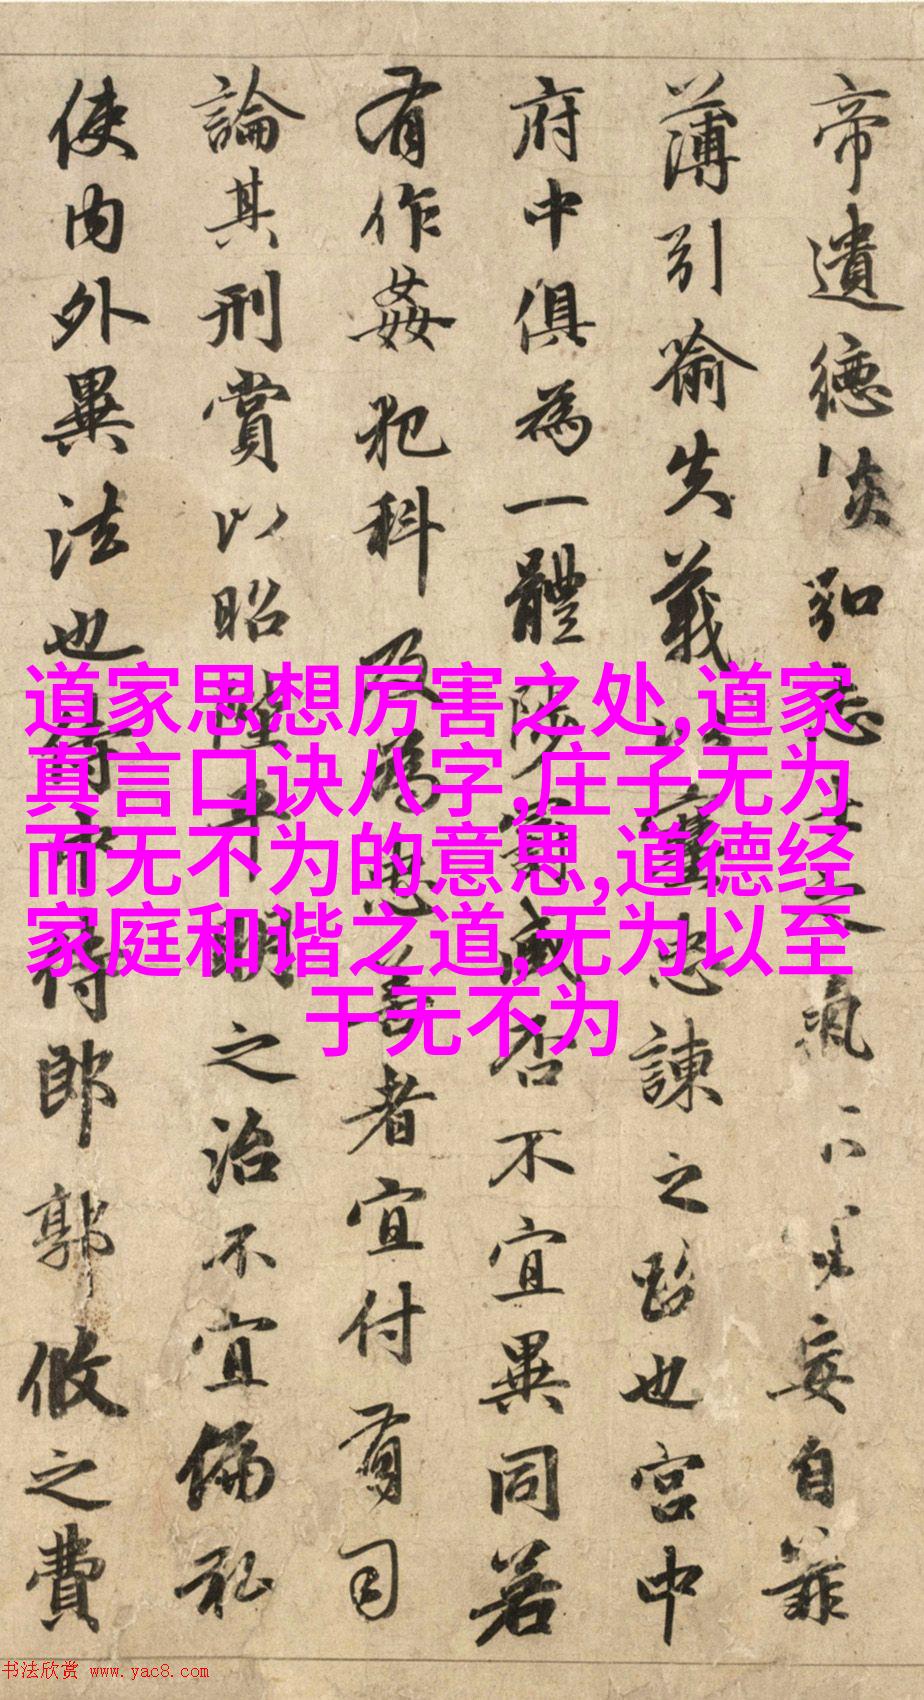 帝遺德恢弘志士之氣不宜妄自菲
薄引喻失義以塞忠諫之路也宮中
府中俱為一體陟罰臧否不宜異同若
有作姦犯科及為忠善者宜付有司
論其刑賞以昭陛平明之治不宜偏私
使內外異法也侍中侍郎郭攸之費
道家思想厉害之处,道家
真言口诀八字,庄子无为
而无不为的意思,道德经
家庭和谐之道,无为以至
于无不为
书法欣赏 www.yac8.com